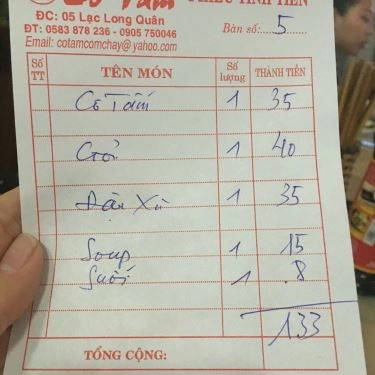 Cô Tấm PHIẾU TÍNH TIỀN
ĐC: 05 Lạc Long Quân
ĐT: 0583 878 236 - 0905 750046
Bàn số:....5
Email: cotamcomchay@yahoo.com
Số TT TÊN MÓN Số lượng THÀNH TIỀN
Cô Tấm 1 35
Gỏi 1 40
Đậu Xù 1 35
Soup 1 15
Suối 1 .8
133
TỔNG CỘNG: